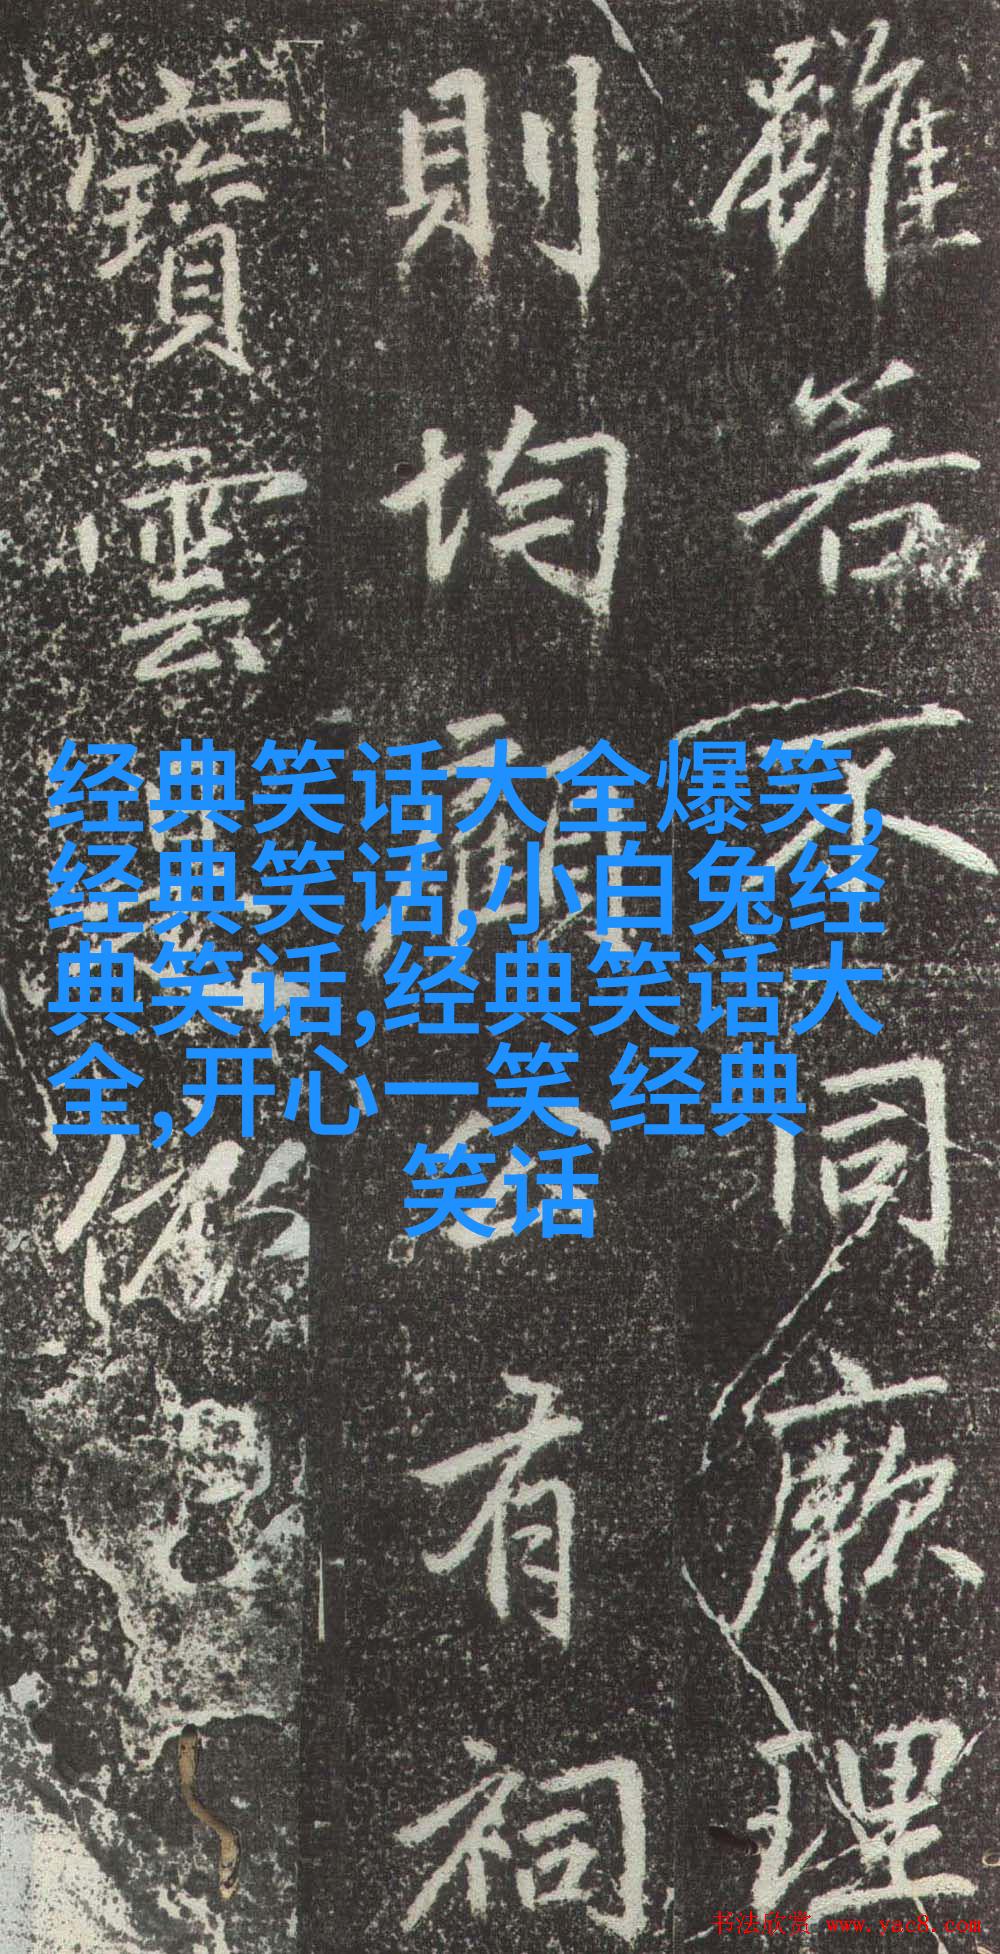 雖若不同厥理
則均顧今有祠
寶雲
经典笑话大全爆笑,
经典笑话,小白兔经
典笑话,经典笑话大
全,开心一笑 经典
笑话
书法欣赏 www.yac8.com